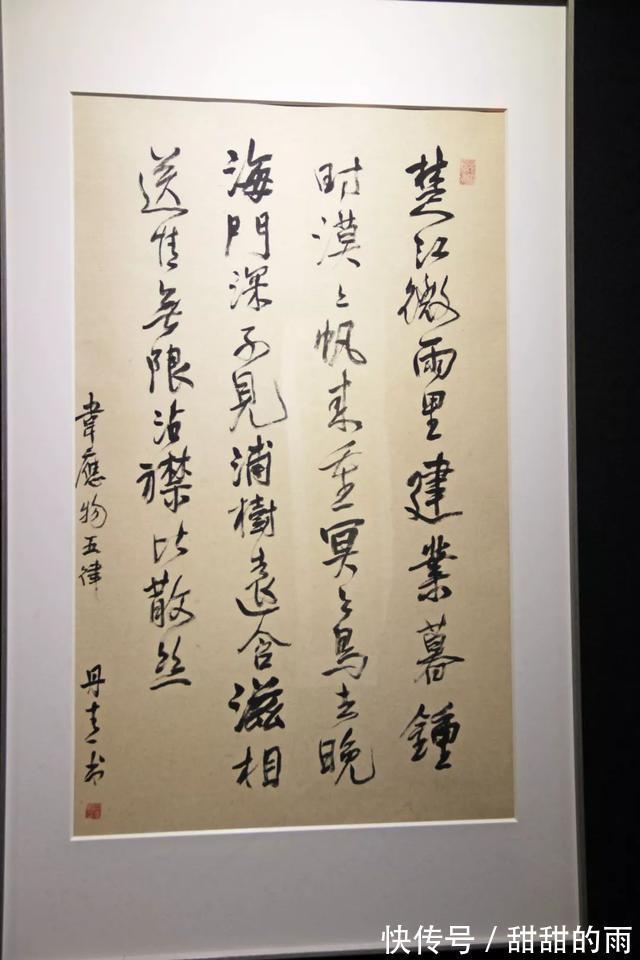 楚江微雨里建業暮鍾
时漠〻帆来重冥〻鳥去晚
海門深不見浦樹遠含滋相
送情無限沾襟比散丝
韋應物五律 丹青书
快传号 / 甜甜的雨